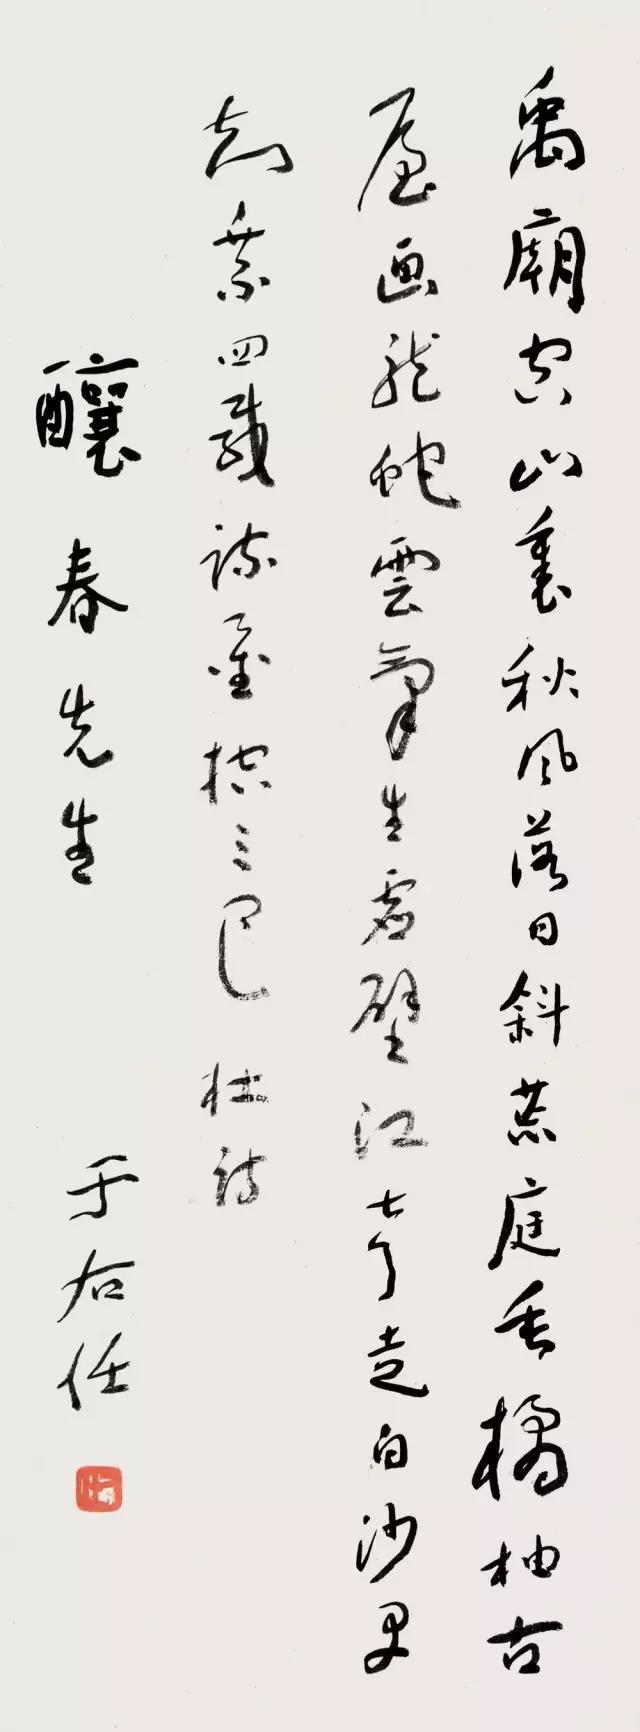 禹廟空山裏秋風落日斜荒庭垂橘柚古
屋画龍蛇雲氣生虛壁江聲走白沙早
知乘四載疏鑿控三巴 杜詩
釀春先生 于右任